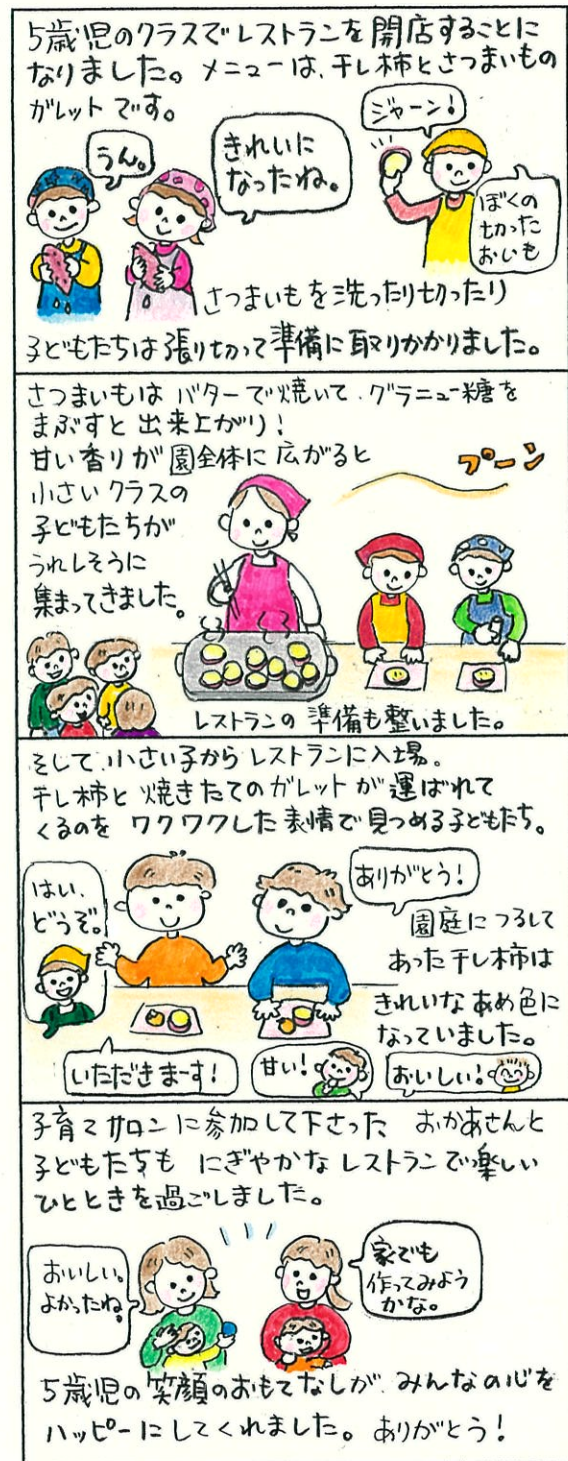 5歳児のクラスでレストランを開店することに
なりました。メニューは、干し柿とさつまいもの
ガレットです。
うん。
きれいに
なったね。
ジャーン！
ぼくの
切った
おいも
さつまいもを洗ったり切ったり
子どもたちは張り切って準備に取りかかりました。
さつまいもはバターで焼いて、グラニュー糖を
まぶすと出来上がり！
甘い香りが園全体に広がると
小さいクラスの
子どもたちが
うれしそうに
集まってきました。
プーン
レストランの準備も整いました。
そして、小さい子からレストランに入場。
干し柿と焼きたてのガレットが運ばれて
くるのをワクワクした表情で見つめる子どもたち。
はい、
どうぞ。
ありがとう！
園庭につるして
あった干し柿は
きれいなあめ色に
なっていました。
いただきまーす！
甘い！
おいしい！
子育てサロンに参加して下さった おかあさんと
子どもたちも にぎやかなレストランで楽しい
ひとときを過ごしました。
おいしい。
よかったね。
家でも
作ってみよう
かな。
5歳児の笑顔のおもてなしが、みんなの心を
ハッピーにしてくれました。ありがとう！